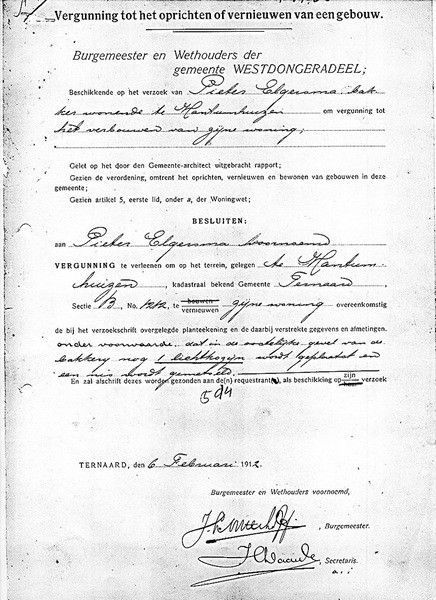 Vergunning tot het oprichten of vernieuwen van een gebouw.
Burgemeester en Wethouders der
gemeente WESTDONGERADEEL;
Beschikkende op het verzoek van Pieter Elgersma bak-
ker wonende te Hantumhuizen om vergunning tot
het verbouwen van zijne woning;
Gelet op het door den Gemeente-architect uitgebracht rapport;
Gezien de verordening, omtrent het oprichten, vernieuwen en bewonen van gebouwen in deze
gemeente;
Gezien artikel 5, eerste lid, onder a, der Woningwet;
BESLUITEN:
aan Pieter Elgersma voornoemd
VERGUNNING te verleenen om op het terrein, gelegen te Hantum-
huizen, kadastraal bekend Gemeente Ternaard
Sectie B, No. 1212, te bouwen vernieuwen zijne woning overeenkomstig
de bij het verzoekschrift overgelegde planteekening en de daarbij verstrekte gegevens en afmetingen.
onder voorwaarde, dat in de oostelijke gevel van de
bakkery nog 1 lichtkozijn wordt geplaatst en
een nis wordt gemetseld.
En zal afschrift dezes worden gezonden aan de(n) requestrant(e), als beschikking op zijn haar verzoek
TERNAARD, den 6 Februari 1912
Burgemeester en Wethouders voornoemd,
Burgemeester.
Secretaris.